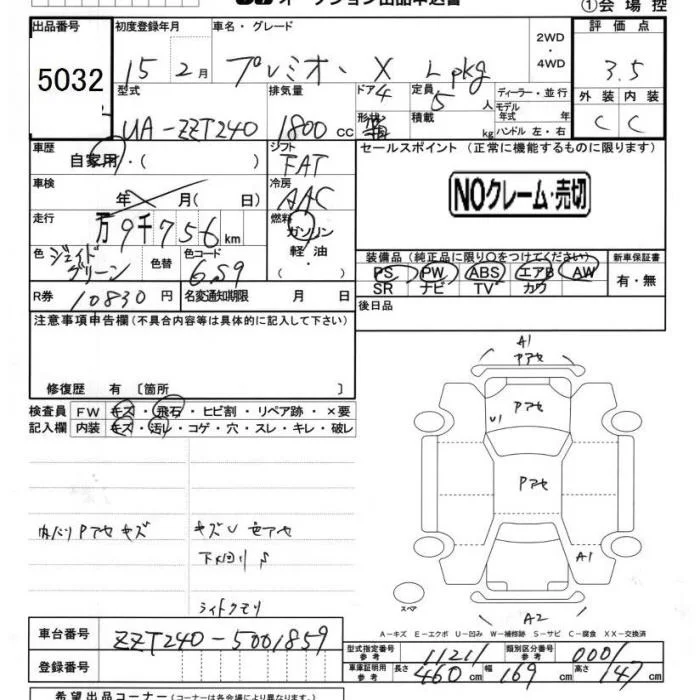 ①会場控
出品番号
5032
初度登録年月
15 2月
車名・グレード
プレミオ、 X Lpkg
2WD
・
4WD
評価点
3.5
型式
UA-ZZT240
排気量
1800 CC
ドア
4
形状
定員
5 人
積載
kg
ディーラー・並行
モデル
年式 年
ハンドル 左・右
外装 内装
C C
車歴
自家用・( )
シフト
FAT
セールスポイント (正常に機能するものに限ります)
NOクレーム・売切
車検
年 月(日)
冷房
AAC
走行
万9千756km
燃料
ガソリン
・
軽油
・
色
ジェイド
グリーン
色替
色コード
6S9
装備品(純正品に限り○をつけてください)
PS PW ABS エアB AW
SR ナビ TV カワ
新車保証書
有・無
R券
10830円
名変通知期限 月 日
後日品
注意事項申告欄(不具合内容等は具体的に記入して下さい)
修復歴 有 〔箇所 〕
検査員
記入欄
FW キズ・飛石・ヒビ割・リペア跡・×要
内装 キズ・汚レ・コゲ・穴・スレ・キレ・破レ
内バリPアセキズ
キズU色アセ
下回りS
ライトクモリ
A1
Pアセ
Pアセ
U1
Pアセ
A1
A2
スペア
A―キズ E―エクボ U―凹み W―補修跡 S―サビ C―腐食 XX―交換済
車台番号
ZZT240-5001859
登録番号
型式指定番号
参考
11211
類別区分番号
参考
0001
車庫証明用
参考
長さ 460cm 幅 169cm 高さ 147cm
希望出品コーナー(コーナーは各会場により異なります)